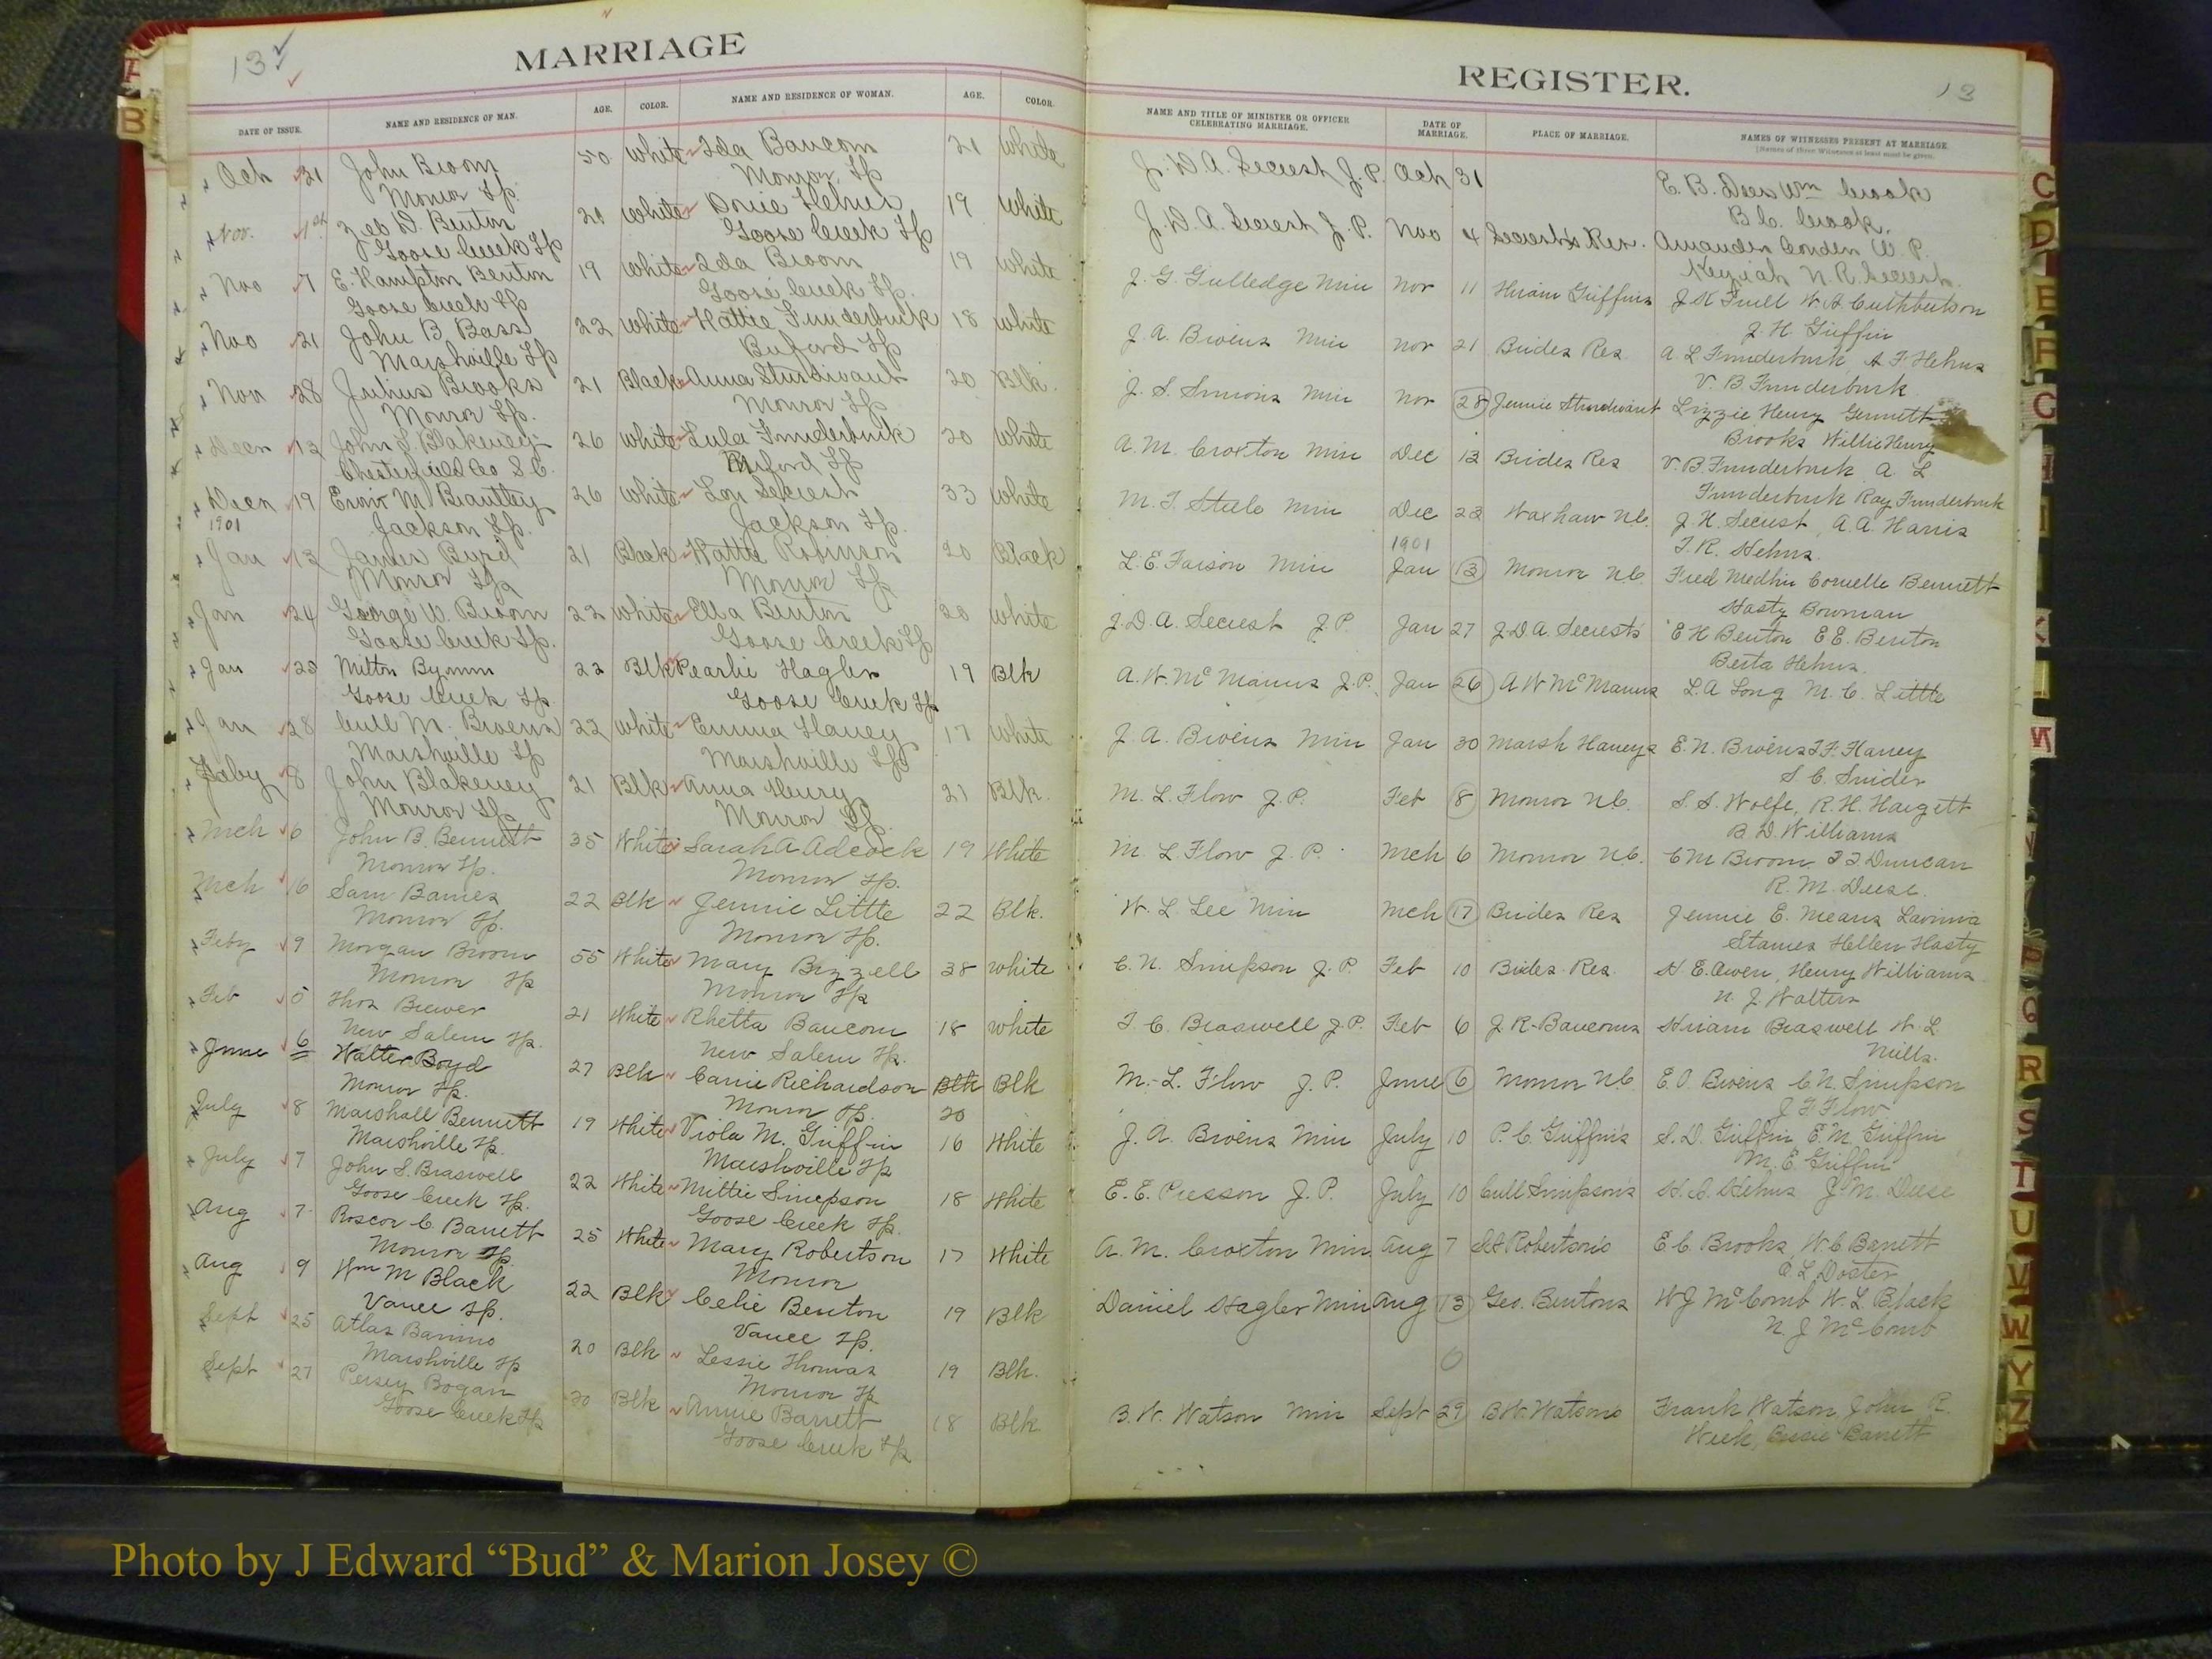 13
MARRIAGE
DATE OF ISSUE. NAME AND RESIDENCE OF MAN. AGE. COLOR. NAME AND RESIDENCE OF WOMAN. AGE. COLOR.
Oct 31 John Broom 50 White Ida Baucom 21 White
Monroe Tp. Monroe Tp
Nov. 1st Zeb D. Benton 20 White Dovie Helms 19 White
Goose Creek Tp Goose Creek Tp
Nov 7 E. Hampton Benton 19 White Ida Broom 19 White
Goose Creek Tp Goose Creek Tp.
Nov 21 John B. Bass 22 White Hattie Funderburk 18 White
Marshville Tp Buford Tp
Nov 28 Julius Brooks 21 Black Anna Sturdivant 20 Blk.
Monroe Tp. Monroe Tp
Decr 12 John S. Blakeney 26 White Lula Funderburk 20 White
Chesterfield Co S.C. Buford Tp
Decr 19 M. Brantley 26 White Lou Secrest 33 White
1901 Jackson Tp. Jackson Tp.
Jan 12 James Byrd 21 Black Hattie Robinson 20 Black
Monroe Tp Monroe Tp
Jan 24 George W. Broom 22 White Ella Benton 20 White
Goose Creek Tp. Goose Creek Tp
Jan 25 Milton Bynum 22 Blk Pearlie Hagler 19 Blk
Goose Creek Tp Goose Creek Tp
Jan 28 Cull M. Bivens 22 White Emma Haney 17 White
Marshville Tp Marshville Tp
Feby 8 John Blakeney 21 Blk Anna Henry 21 Blk.
Monroe Tp Monroe Tp.
Mch 6 John B. Bennett 35 White Sarah A Adcock 19 White
Monroe Tp. Monroe Tp.
Mch 16 Sam Barnes 22 Blk Jennie Little 22 Blk.
Monroe Tp. Monroe Tp.
Feby 9 Morgan Broom 55 White Mary Bizzell 38 White
Monroe Tp Monroe Tp
Feb 5 Thos Brewer 21 White Rhetta Baucom 18 White
New Salem Tp. New Salem Tp.
June 6 Walter Boyd 27 Blk Carrie Richardson Blk Blk
Monroe Tp. Monroe Tp. 20
July 8 Marshall Bennett 19 White Viola M. Griffin 16 White
Marshville Tp. Marshville Tp
July 7 John S. Braswell 22 White Mittie Simpson 18 White
Goose Creek Tp. Goose Creek Tp.
Aug 7 Roscoe C. Barrett 25 White Mary Robertson 17 White
Monroe Tp. Monroe
Aug 9 Wm M Black 22 Blk Celie Benton 19 Blk
Vance Tp. Vance Tp.
Sept 25 Atlas Barrino 20 Blk Lessie Thomas 19 Blk.
Marshville Tp Monroe Tp
Sept 27 Persey Bogan 20 Blk Annie Barrett 18 Blk
Goose Creek Tp Goose Creek Tp
REGISTER.
13
NAME AND TITLE OF MINISTER OR OFFICER CELEBRATING MARRIAGE. DATE OF MARRIAGE. PLACE OF MARRIAGE. NAMES OF WITNESSES PRESENT AT MARRIAGE.
[Names of three Witnesses at least must be given.
J. D. A. Secrest J. P. Oct 31 E. B. Dees Wm Crook
B C. Crook.
J. D. A. Secrest J. P. Nov 4 Secrest's Res. Amanda W. P.
Keziah N. R. Secrest
J. G. Gulledge Min Nov 11 Hiram Griffins J K Fuell W. A. Cuthbertson
J. H. Griffin
J. A. Bivens Min Nov 21 Brides Res A L Funderburk A F. Helms
V. B. Funderburk
J. S. Simons Min Nov 28 Jennie Sturdivant Lizzie Henry
Brooks Willie Henry
A. M. Croxton Min Dec 12 Brides Res V. B Funderburk A. L
Funderburk Ray Funderburk
M. T. Steele Min Dec 23 Waxhaw N.C. J. H. Secrest, A. A. Harris
1901 T. R. Helms.
L. E. Faison Min Jan 13 Monroe N.C. Fred Medlin Cornelle Bennett
Hasty Bowman
J. D. A. Secrest J. P. Jan 27 J. D. A. Secrests E H Benton E E. Benton
Berta Helms.
A. W. McManus J. P. Jan 26 A W McManus L. A Long M. C. Little
J. A. Bivens Min Jan 30 Marsh Haneys E. N. Bivens T. F. Haney
S C. Snider
M. L. Flow J. P. Feb 8 Monroe N.C. S. S. Wolfe, R. H. Hargett
B. D. Williams
M. L. Flow J. P. Mch 6 Monroe N.C. C M Broom T J Duncan
R. M. Deese.
W. L. Lee Min Mch 17 Brides Res Jennie E. Means Lavinia
Starnes Hellen Hasty
C. N. Simpson J. P. Feb 10 Brides Res. H. E. Owen, Henry Williams
N. J. Walters
T. C. Braswell J. P. Feb 6 J. R. Baucoms Hiram Braswell W. L
Mills.
M. L. Flow J. P. June 6 Monroe N.C. E. O. Bivens C. N. Simpson
J F Flow
J. A. Bivens Min July 10 P. C. Griffin's S. D. Griffin E. M. Griffin
M. E. Griffin
E. E. Presson J. P. July 10 Cull Simpson's H. A. Helms J. M. Deese
A. M. Croxton Min Aug 7 Robertson's E C. Brooks, W C Barrett
E L Doster
Daniel Hagler Min Aug 13 Geo. Bentons W J McComb W. L Black
N. J McComb
B. W. Watson Min Sept 29 B. W. Watsons Frank Watson John R.
Bessie Barrett
B
C
D
E
F
G
H
I
K
M
N
P
Q
R
S
T
U
V
W
Y
Z
Photo by J Edward “Bud” & Marion Josey ©